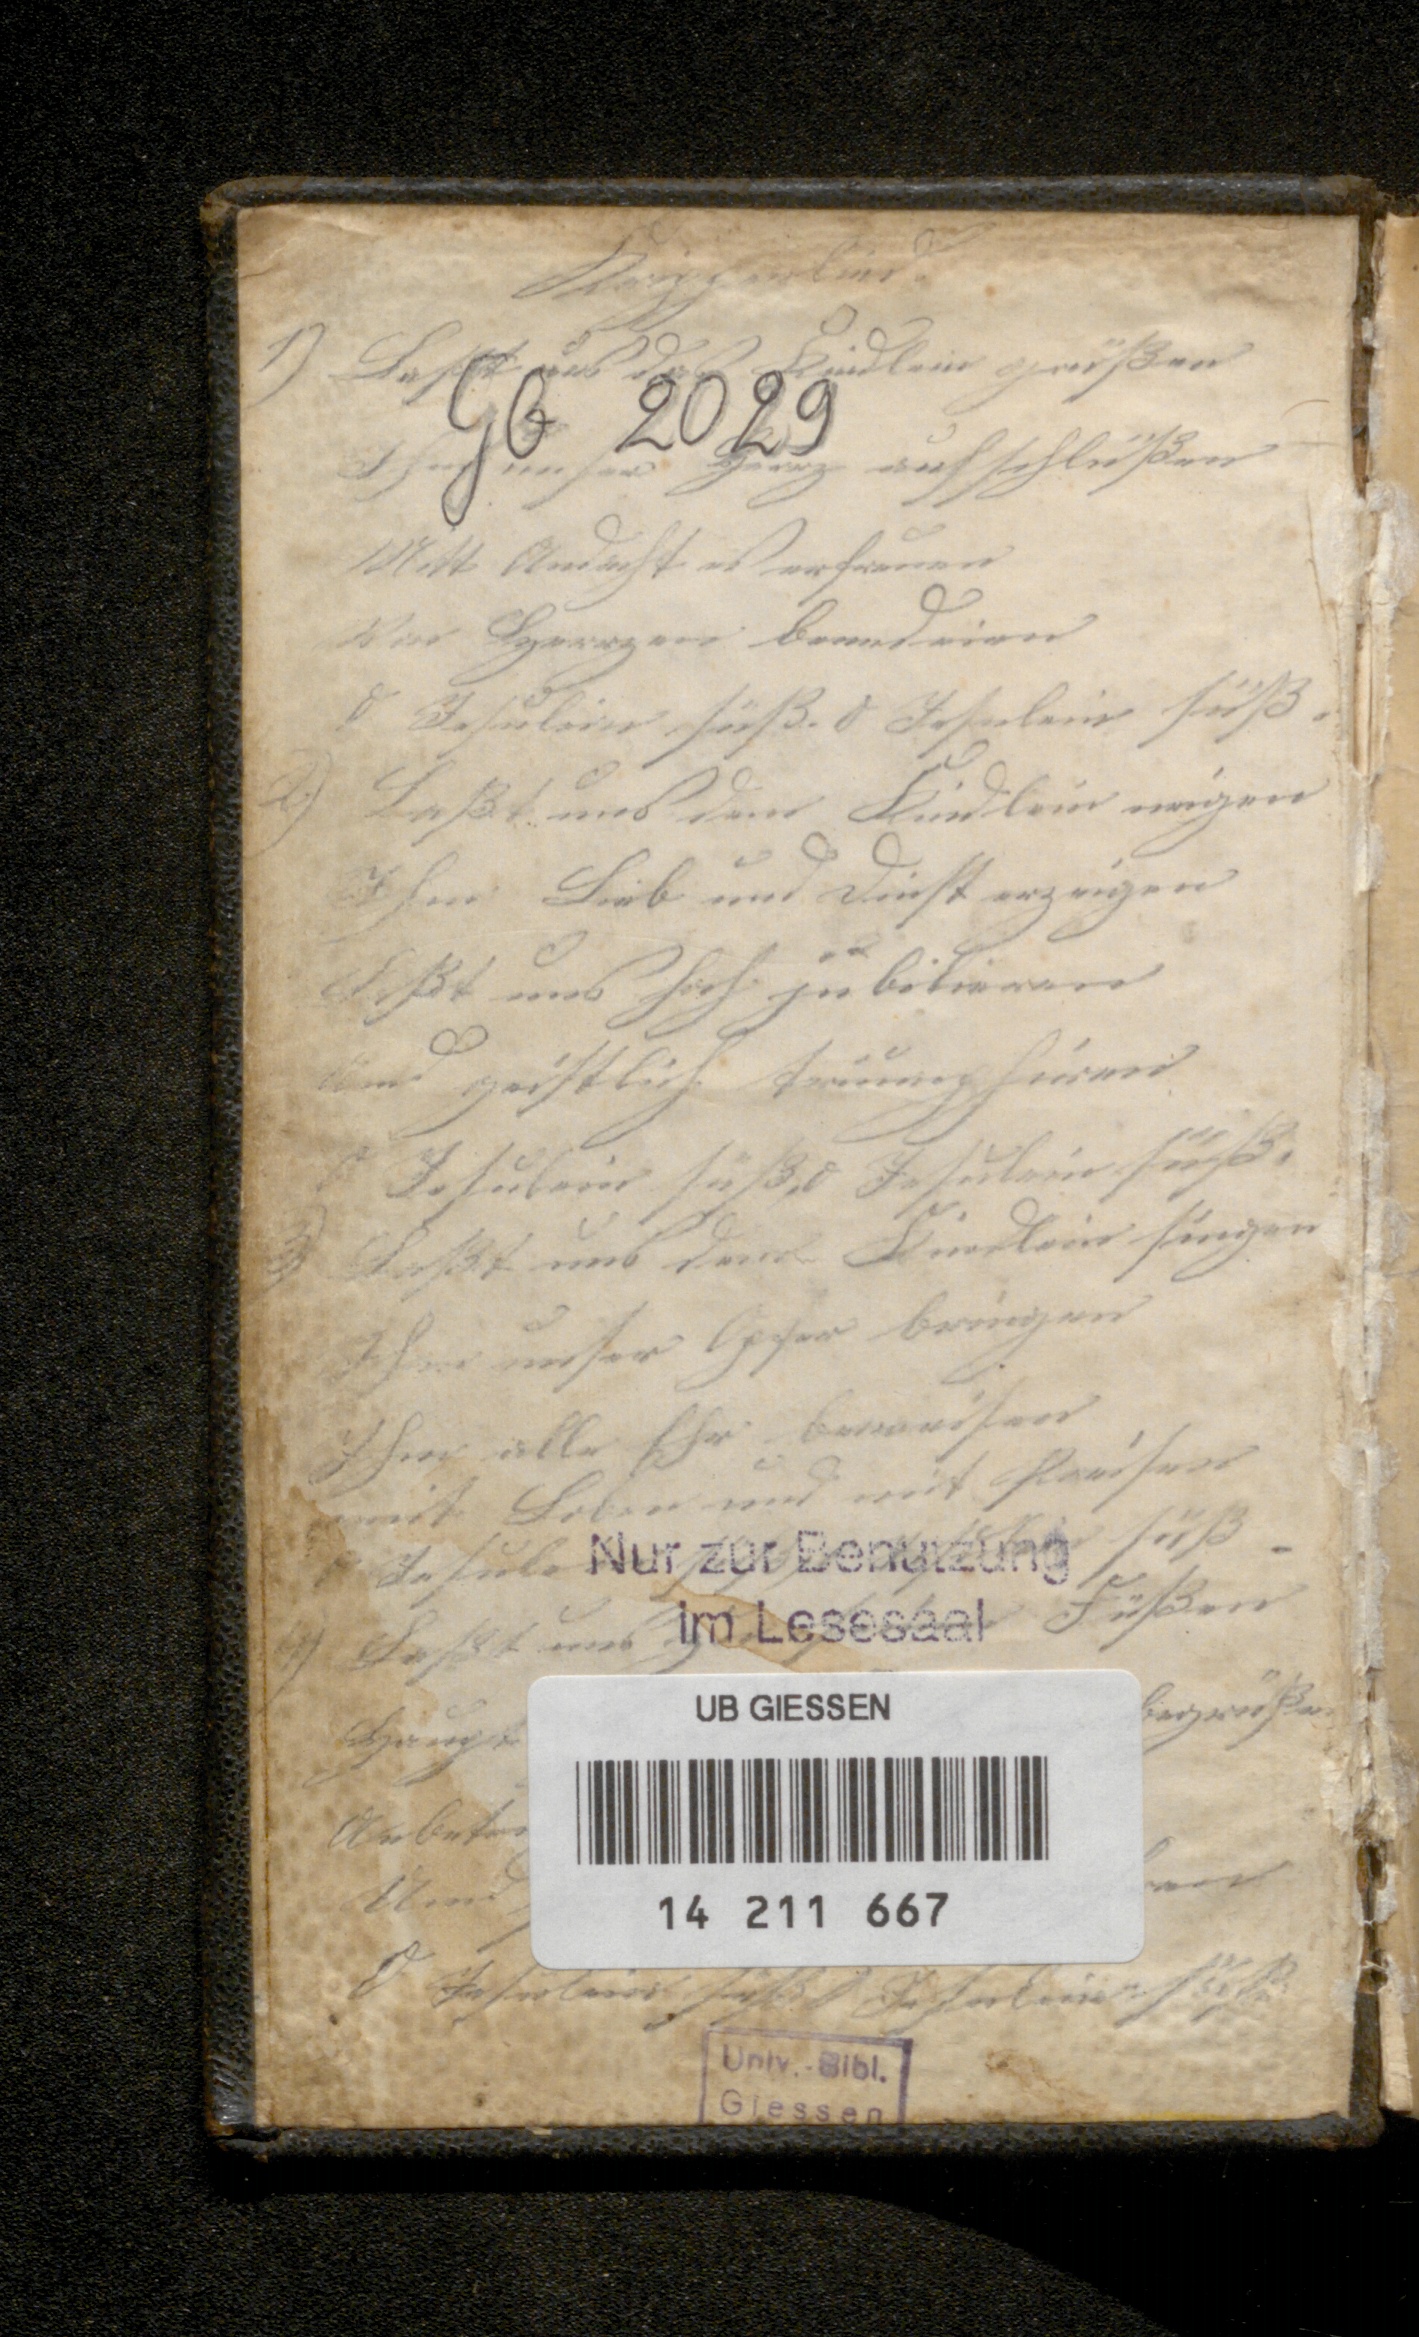 Krippenlied.
1) Laßt uns das Kindlein grüßen
Gb 2029
Ihm unser Herz aufschlüßen
Mitt Andacht es erfreuen
Von Herrzen benedeien
O Jesulein süß. O Jesulein süß.
2) Laßt uns dem Kindlein neigen
Ihm Lieb und Dinst erzeigen
Laßt uns hoch jubiliren
Und geistlich triumphiren
O Jesulein süß, O Jesulein süß.
3) Laßt uns dem Kindlein singen
Ihm unser Opfer bringen
Ihm alle Ehr beweisen
mit Loben und mit Preisen
O Jesule süß
Nur zur Benutzung
im Lesesaal
4) Laßt uns Füßen
Haupt begrüßen
UB GIESSEN
Anbeten
Und
14 211 667
O Jesulein süß O Jesulein süß.
Univ.-Bibl.
Giessen